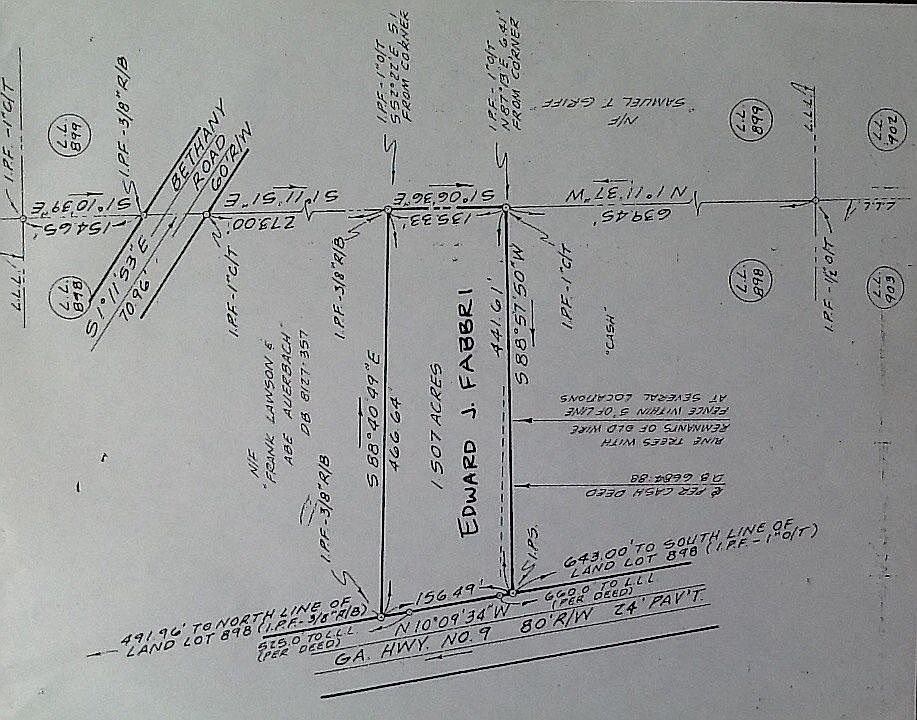 I.P.F.-1"C/T
L.L.
899
I.P.F.-3/8"R/B
BETHANY
ROAD
60'R/W
S1°10'39"E
154.65'
S1°11'53"E
70.96'
L.L.L.
L.L.
898
I.P.F.-1"C/T
S1°11'51"E
273.00'
I.P.F.-1"O/T
S52°22'E 5.1
FROM CORNER
I.P.F.-3/8"R/B
S1°06'36"E
135.33'
I.P.F.-1"O/T
N87°13'E 6.41'
FROM CORNER
I.P.F.-1"C/T
N1°11'37"W
639.45'
N/F
"SAMUEL T. GRIFF"
L.L.
899
L.L.L.
L.L.
902
L.L.L.
L.L.
898
L.L.
903
I.P.F.-1/2"O/T
"CASH"
N/F
"FRANK LAWSON &
ABE AUERBACH"
DB 8127-357
I.P.F.-3/8"R/B
S88°40'49"E
466.64'
1.507 ACRES
EDWARD J. FABBRI
441.61'
S88°57'50"W
PINE TREES WITH
REMNANTS OF OLD WIRE
FENCE WITHIN 5' OF LINE
AT SEVERAL LOCATIONS
℄ PER CASH DEED
D.B. 6684-88
I.P.S.
491.96' TO NORTH LINE OF
LAND LOT 898 (I.P.F.-3/8"R/B)
525.0' TO L.L.L.
(PER DEED)
156.49'
N10°09'34"W
660.0' TO L.L.L.
(PER DEED)
643.00' TO SOUTH LINE OF
LAND LOT 898 (I.P.F.-1"O/T)
GA. HWY. NO. 9 80'R/W 24' PAV'T.